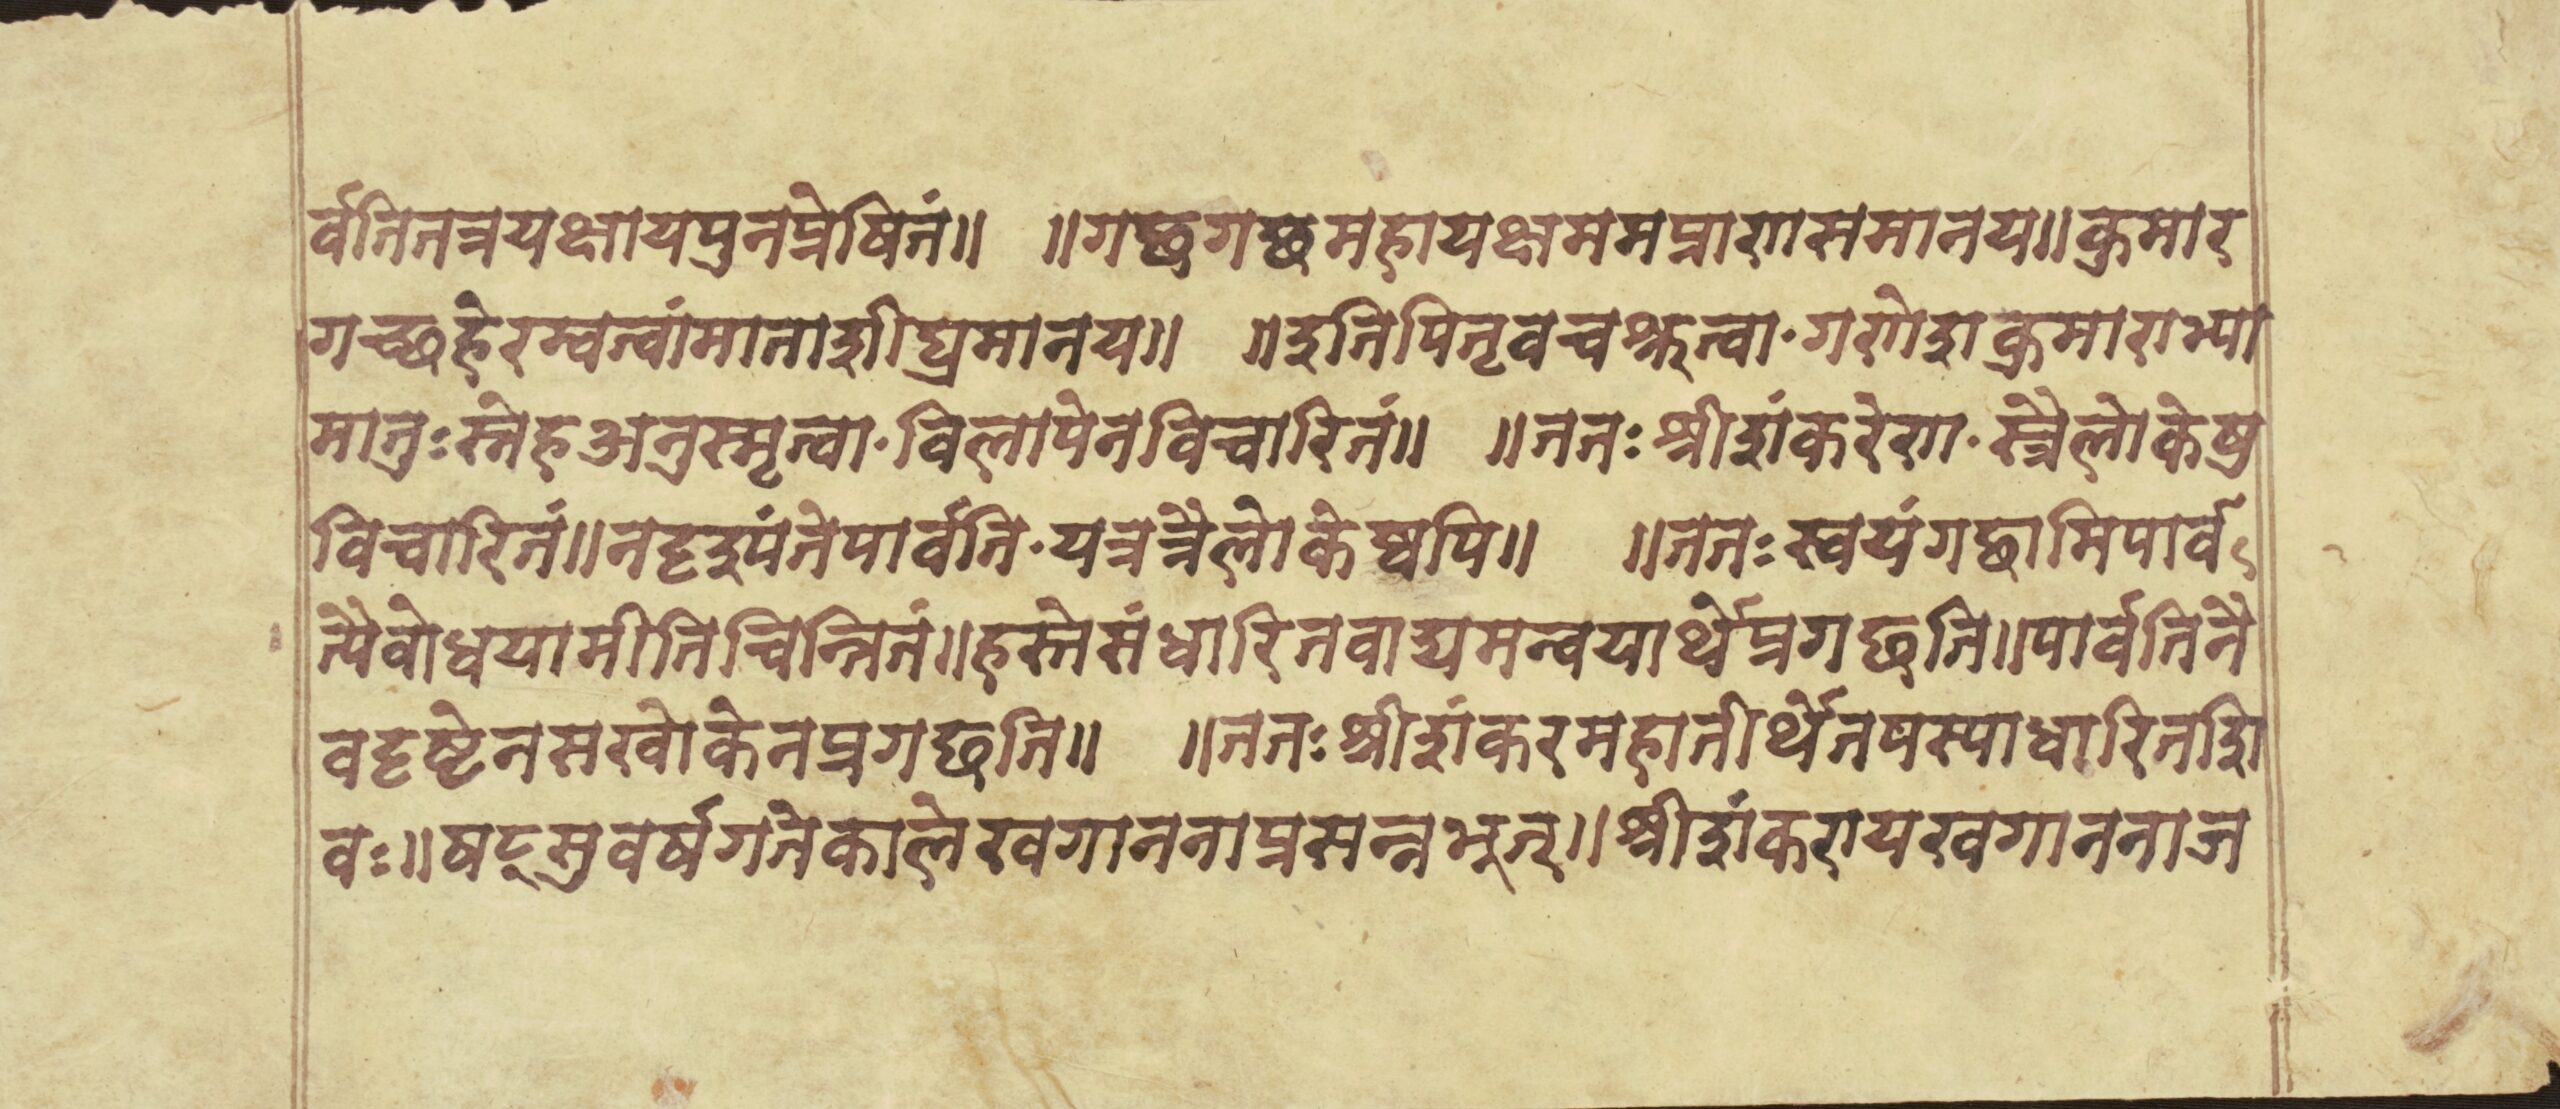 र्वतितत्रयक्षायपुनप्रेषितं॥ ॥गछगछमहायक्षममप्राणसमानय॥कुमार
गच्छहेरम्वत्वांमाताशीघ्रमानय॥ ॥इतिपितृवचश्रुत्वा·गणेशकुमाराभ्या
मातुःस्नेहअनुस्मृत्वा·विलापेनविचारितं॥ ॥ततःश्रीशंकरेण·स्त्रैलोकेषु
विचारितं॥नदृइपंतेपार्वति·यत्रत्रैलोकेष्वपि॥ ॥ततःस्वयंगछामिपार्व
त्यैवोधयामीतिचिन्तितं॥हस्तेसंधारितवाद्यमन्वयार्थेप्रगछति॥पार्वतिनै
वदृष्टेनसखोकेनप्रगछति॥ ॥ततःश्रीशंकरमहातीर्थेतपस्याधारितशि
वः॥षट्सुवर्षगतेकालेखगाननाप्रसन्नभूत्॥श्रीशंकरायखगाननाज